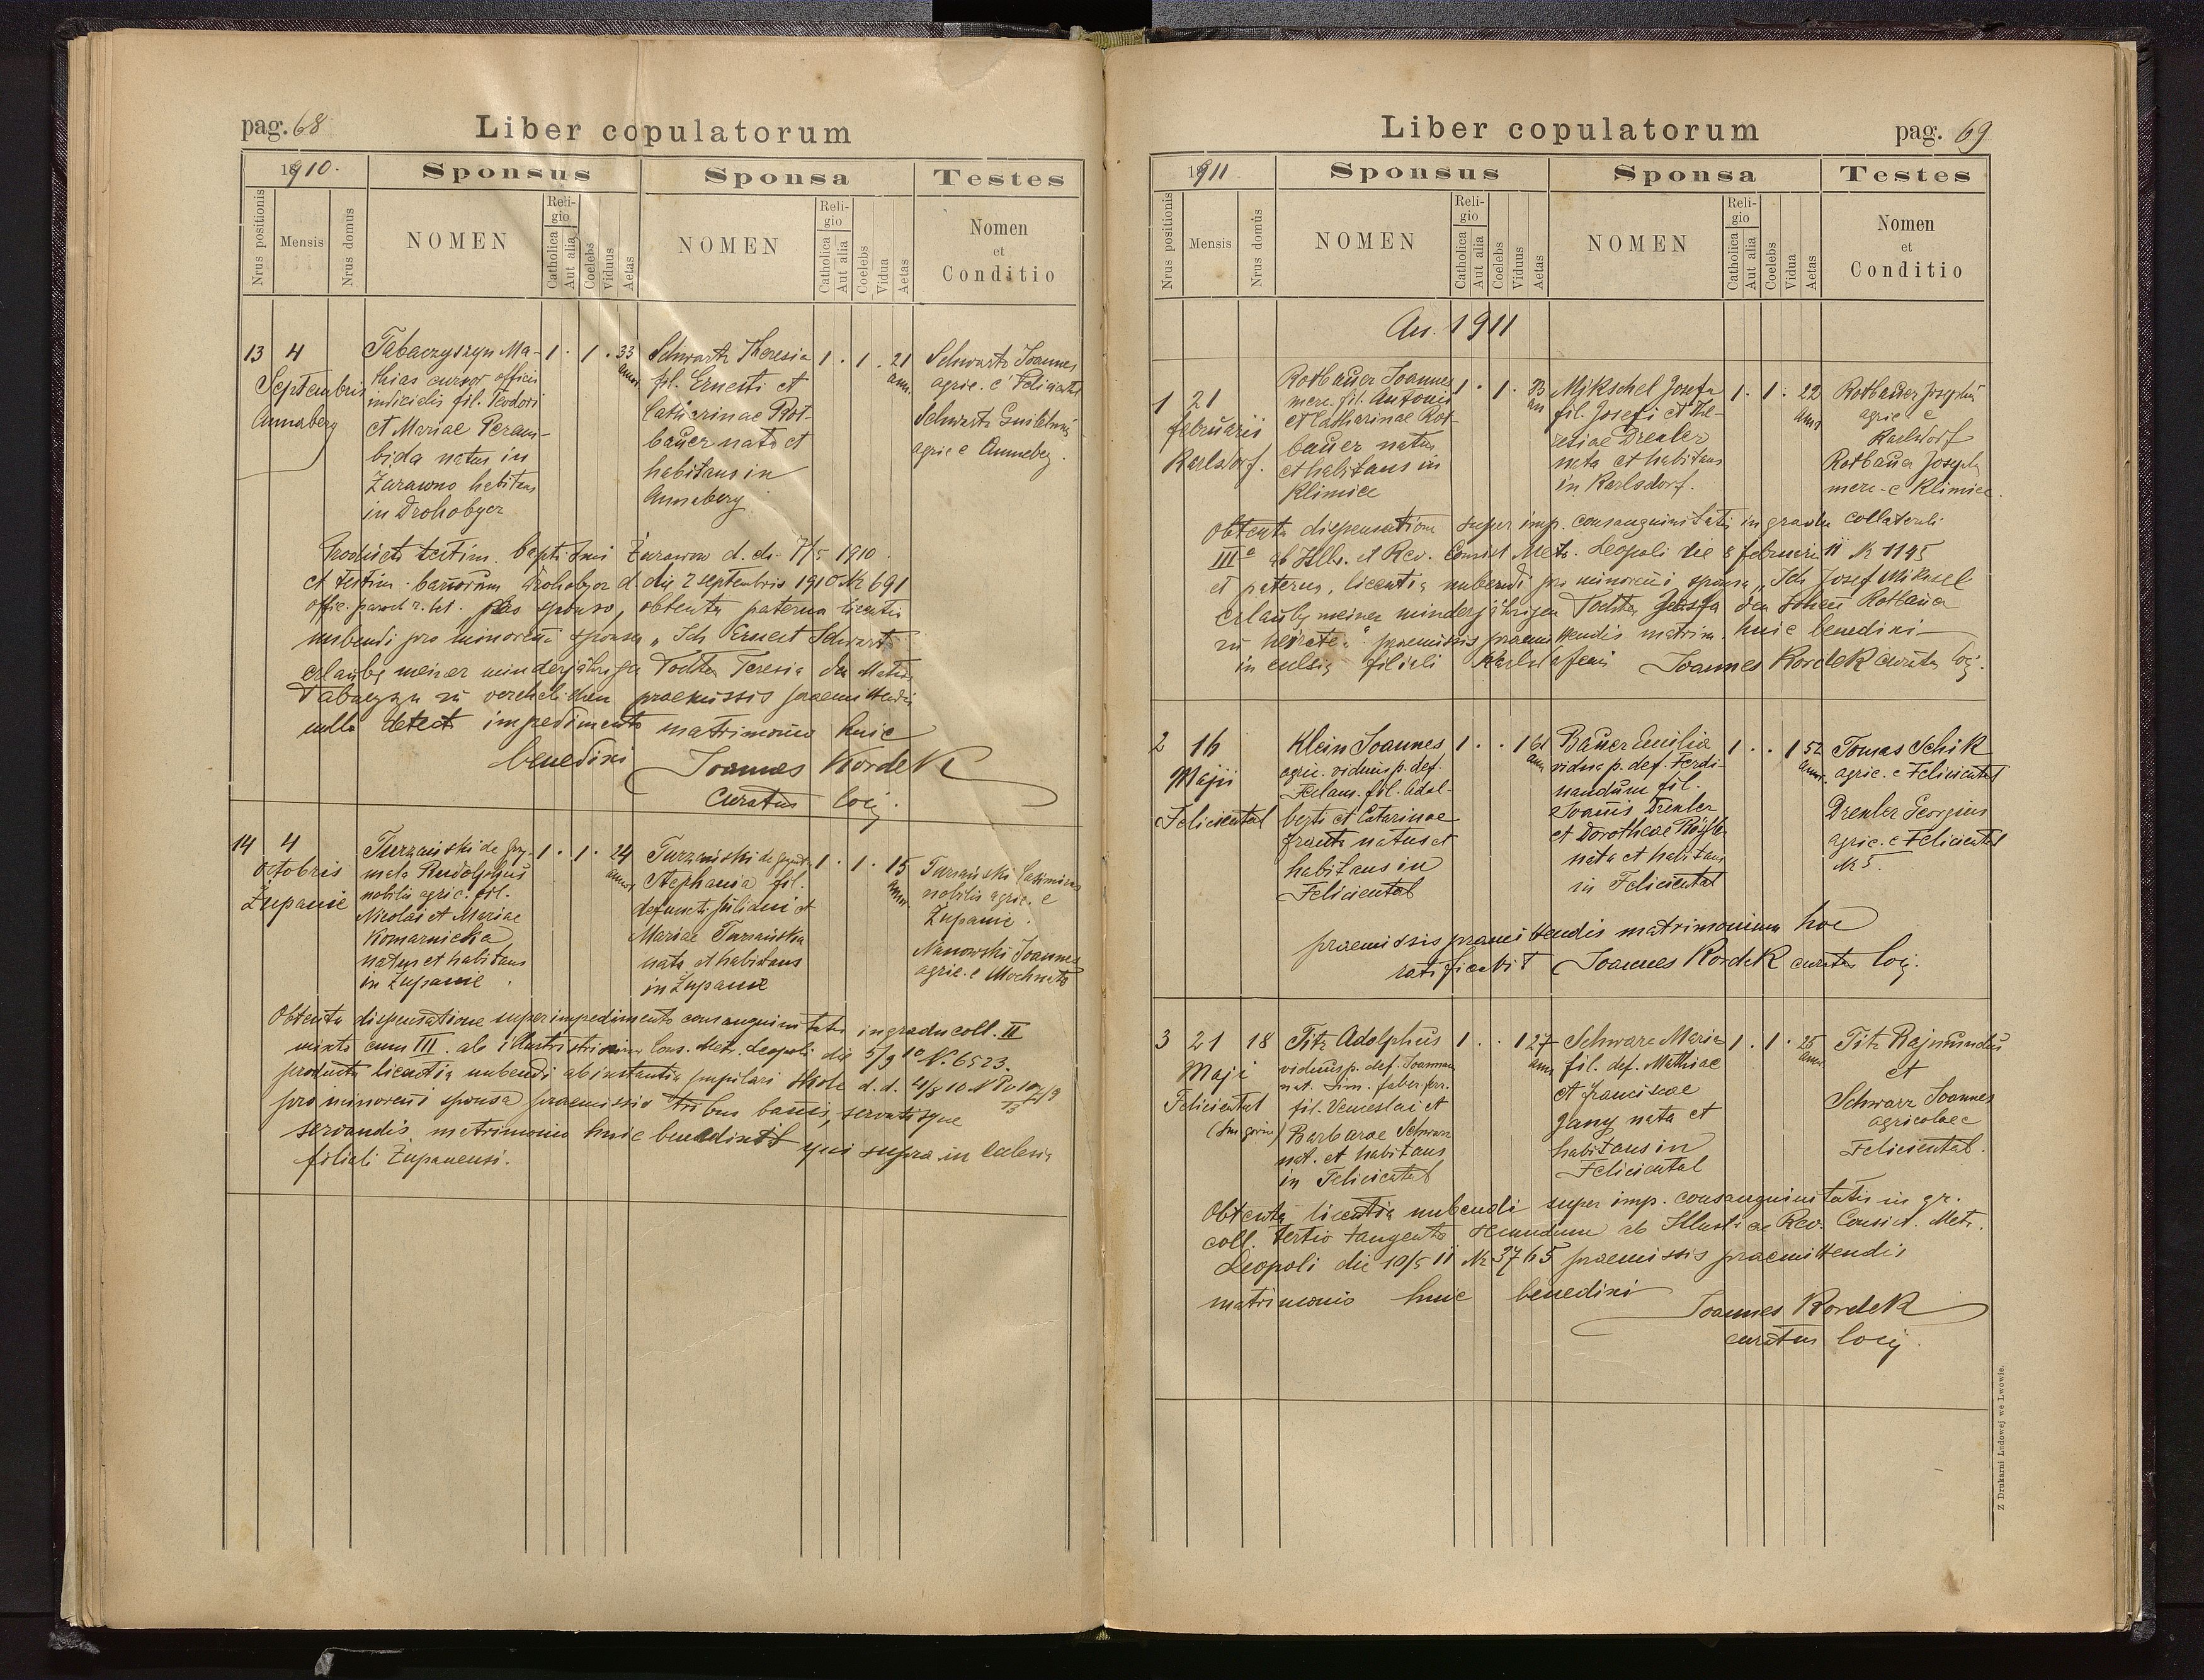 pag. 68
Liber copulatorum
1910.
Sponsus
Sponsa
Testes
Nrus positionis
Mensis
Nrus domus
NOMEN
Religio
Catholica
Aut alia
Coelebs
Viduus
Aetas
NOMEN
Religio
Catholica
Aut alia
Coelebs
Vidua
Aetas
Nomen
et
Conditio
13 4
Septembris
Annaberg
Tabaczyszyn Ma-
thias cursor officii
judicialis fil. Teodori
et Mariae Peram-
bida natus in
Żurawno habitans
in Drohobycz
1 . 1 . 33
annor.
Schwartz Theresia
fil. Ernesti et
Catharinae Rot-
bauer nata et
habitans in
Annaberg
1 . 1 . 21
ann.
Schwartz Joannes
agric. e Feliciental
Schwartz
agric e Annaberg.
Producti testim. baptismi Żurawno d. d. 7/5 1910
et testim. bannorum Drohobycz d. die 2 septembris 1910 Nr 691
offic. paroch r. lat. pro sponso, obtenta paterna licentia
nubendi pro minorenni sponsa „Ich Ernest Schwartz
erlaube meiner minderjähriger Tochter Teresia den
zu verehelichen praemissis praemittendis
nullo detecto impedimento matrimonio huic
benedixi
Joannes Kordek
Curatus loci.
14 4
Octobris
Żupanie
Turzański de
Rudolphus
nobilis agric. fil.
Nicolai et Mariae
Komarnicka
natus et habitans
in Żupanie.
1 . 1 . 24
annor.
Turzański de
Stephania fil.
defuncti Juliani et
Mariae Turzańska
nata et habitans
in Żupanie
1 . 1 . 15
ann.
Turzański Casimirus
nobilis agric. e
Żupanie.
Nanowski Joannes
agric. e Mochnate
Obtenta dispensatione super impedimento consanguinitatis in gradu coll. II
mixto cum III. ab illustrissimo Cons. Metr. Leopoli die 5/9 10 N. 6523.
producta licentia nubendi ab instantia pupilari Skole d.d. 4/8 10
pro minorenni sponsa praemissis tribus bannis, servatisque
servandis matrimonio huic benedixit qui supra in Eclesia
filiali Zupanensi.
Liber copulatorum
pag. 69
1911
Sponsus
Sponsa
Testes
Nrus positionis
Mensis
Nrus domus
NOMEN
Religio
Catholica
Aut alia
Coelebs
Viduus
Aetas
NOMEN
Religio
Catholica
Aut alia
Coelebs
Vidua
Aetas
Nomen
et
Conditio
An. 1911
1 21
februarii
Karlsdorf.
Rotbauer Joannes
merc. fil. Antonii
et Catharinae Rot-
bauer natus
et habitans in
Klimiec
1 . 1 . 23
an
Mikschel Josefa
fil. Josefi et The-
resiae Drexler
nata et habitans
in Karlsdorf.
1 . 1 . 22
ann
Rotbauer Josephus
agric e
Karlsdorf
Rotbauer Joseph
merc. e Klimiec.
Obtenta dispensatione super imp. consanguinitatis in gradu collaterali
III° ab Illu. et Rev. Consist. Metr. Leopoli die 8 februarii 11 Nr 1145
et paterna licentia nubendi pro minorenni sponsa „Ich Josef Miksel
erlaube meiner minderjährigen Tochter Josefa den Johann Rotbauer
zu heirate." praemissis praemittendis matrim. huic benedixi
in eclesia filiali Joannes Kordek curatus loci.
2 16
Maji
Feliciental
Klein Joannes
agric. viduus p. def.
fil. Adal-
berti et Catarinae
natus et
habitans in
Feliciental
1 . . 1 61
ann
Bauer Emilia
vidua p. def. Ferdi-
nandum fil.
Joannis Drexler
et Dorotheae
nata et habitans
in Feliciental
1 . . 1 52
ann.
Tomas Schik
agric. e Feliciental
Drexler Georgius
agric. e Feliciental
Nr 5.
praemissis praemittendis matrimonium hoc
ratificavit Joannes Kordek curatus loci.
3 21 18
Maji
Feliciental
Titz Adolphus
viduus p. def. Joannam
nat. Sim. faber ferr.
fil. Venceslai et
Barbarae Schwarz
nat. et habitans
in Feliciental
1 . . 1 27
ann
Schwarz Maria
fil. def. Mathiae
et Franciscae
Gang nata et
habitans in
Feliciental
1 . 1 . 25
ann
Titz Rajmundus
et
Schwarz Joannes
agricolae e
Feliciental.
Obtenta licentia nubendi super imp. consanguinitatis in gr.
coll. tertio tangente secundum ab Illust. ac Rev. Consist. Metr.
Leopoli die 10/5 11 Nr 3765 praemissis praemittendis
matrimonio huic benedixi
Joannes Kordek
curatus loci.
Z Drukarni Ludowej we Lwowie.